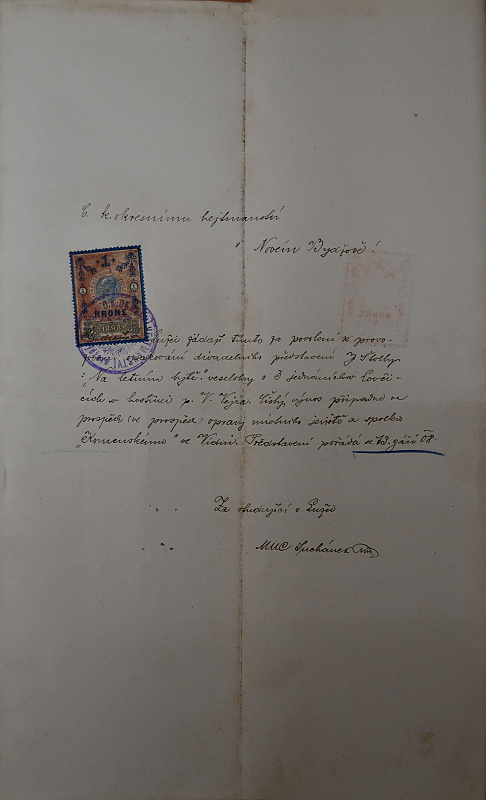 C. k. okresnímu hejtmanství
v Novém Bydžově!
1
KRONE
1898
žádají tímto za povolení k provo-
opakování divadelního představení J. Štolby
"Na letním bytě" veselohry o 3 jednáních v Lovči-
cích v hostinci p. V. Čistý výnos připadne ve
prospěch (ve prospěch) opravy místního a spolku
"Komenského" ve Vídni. Představení pořádá se 13. září 08.
Za studující v
MUC Suchánek